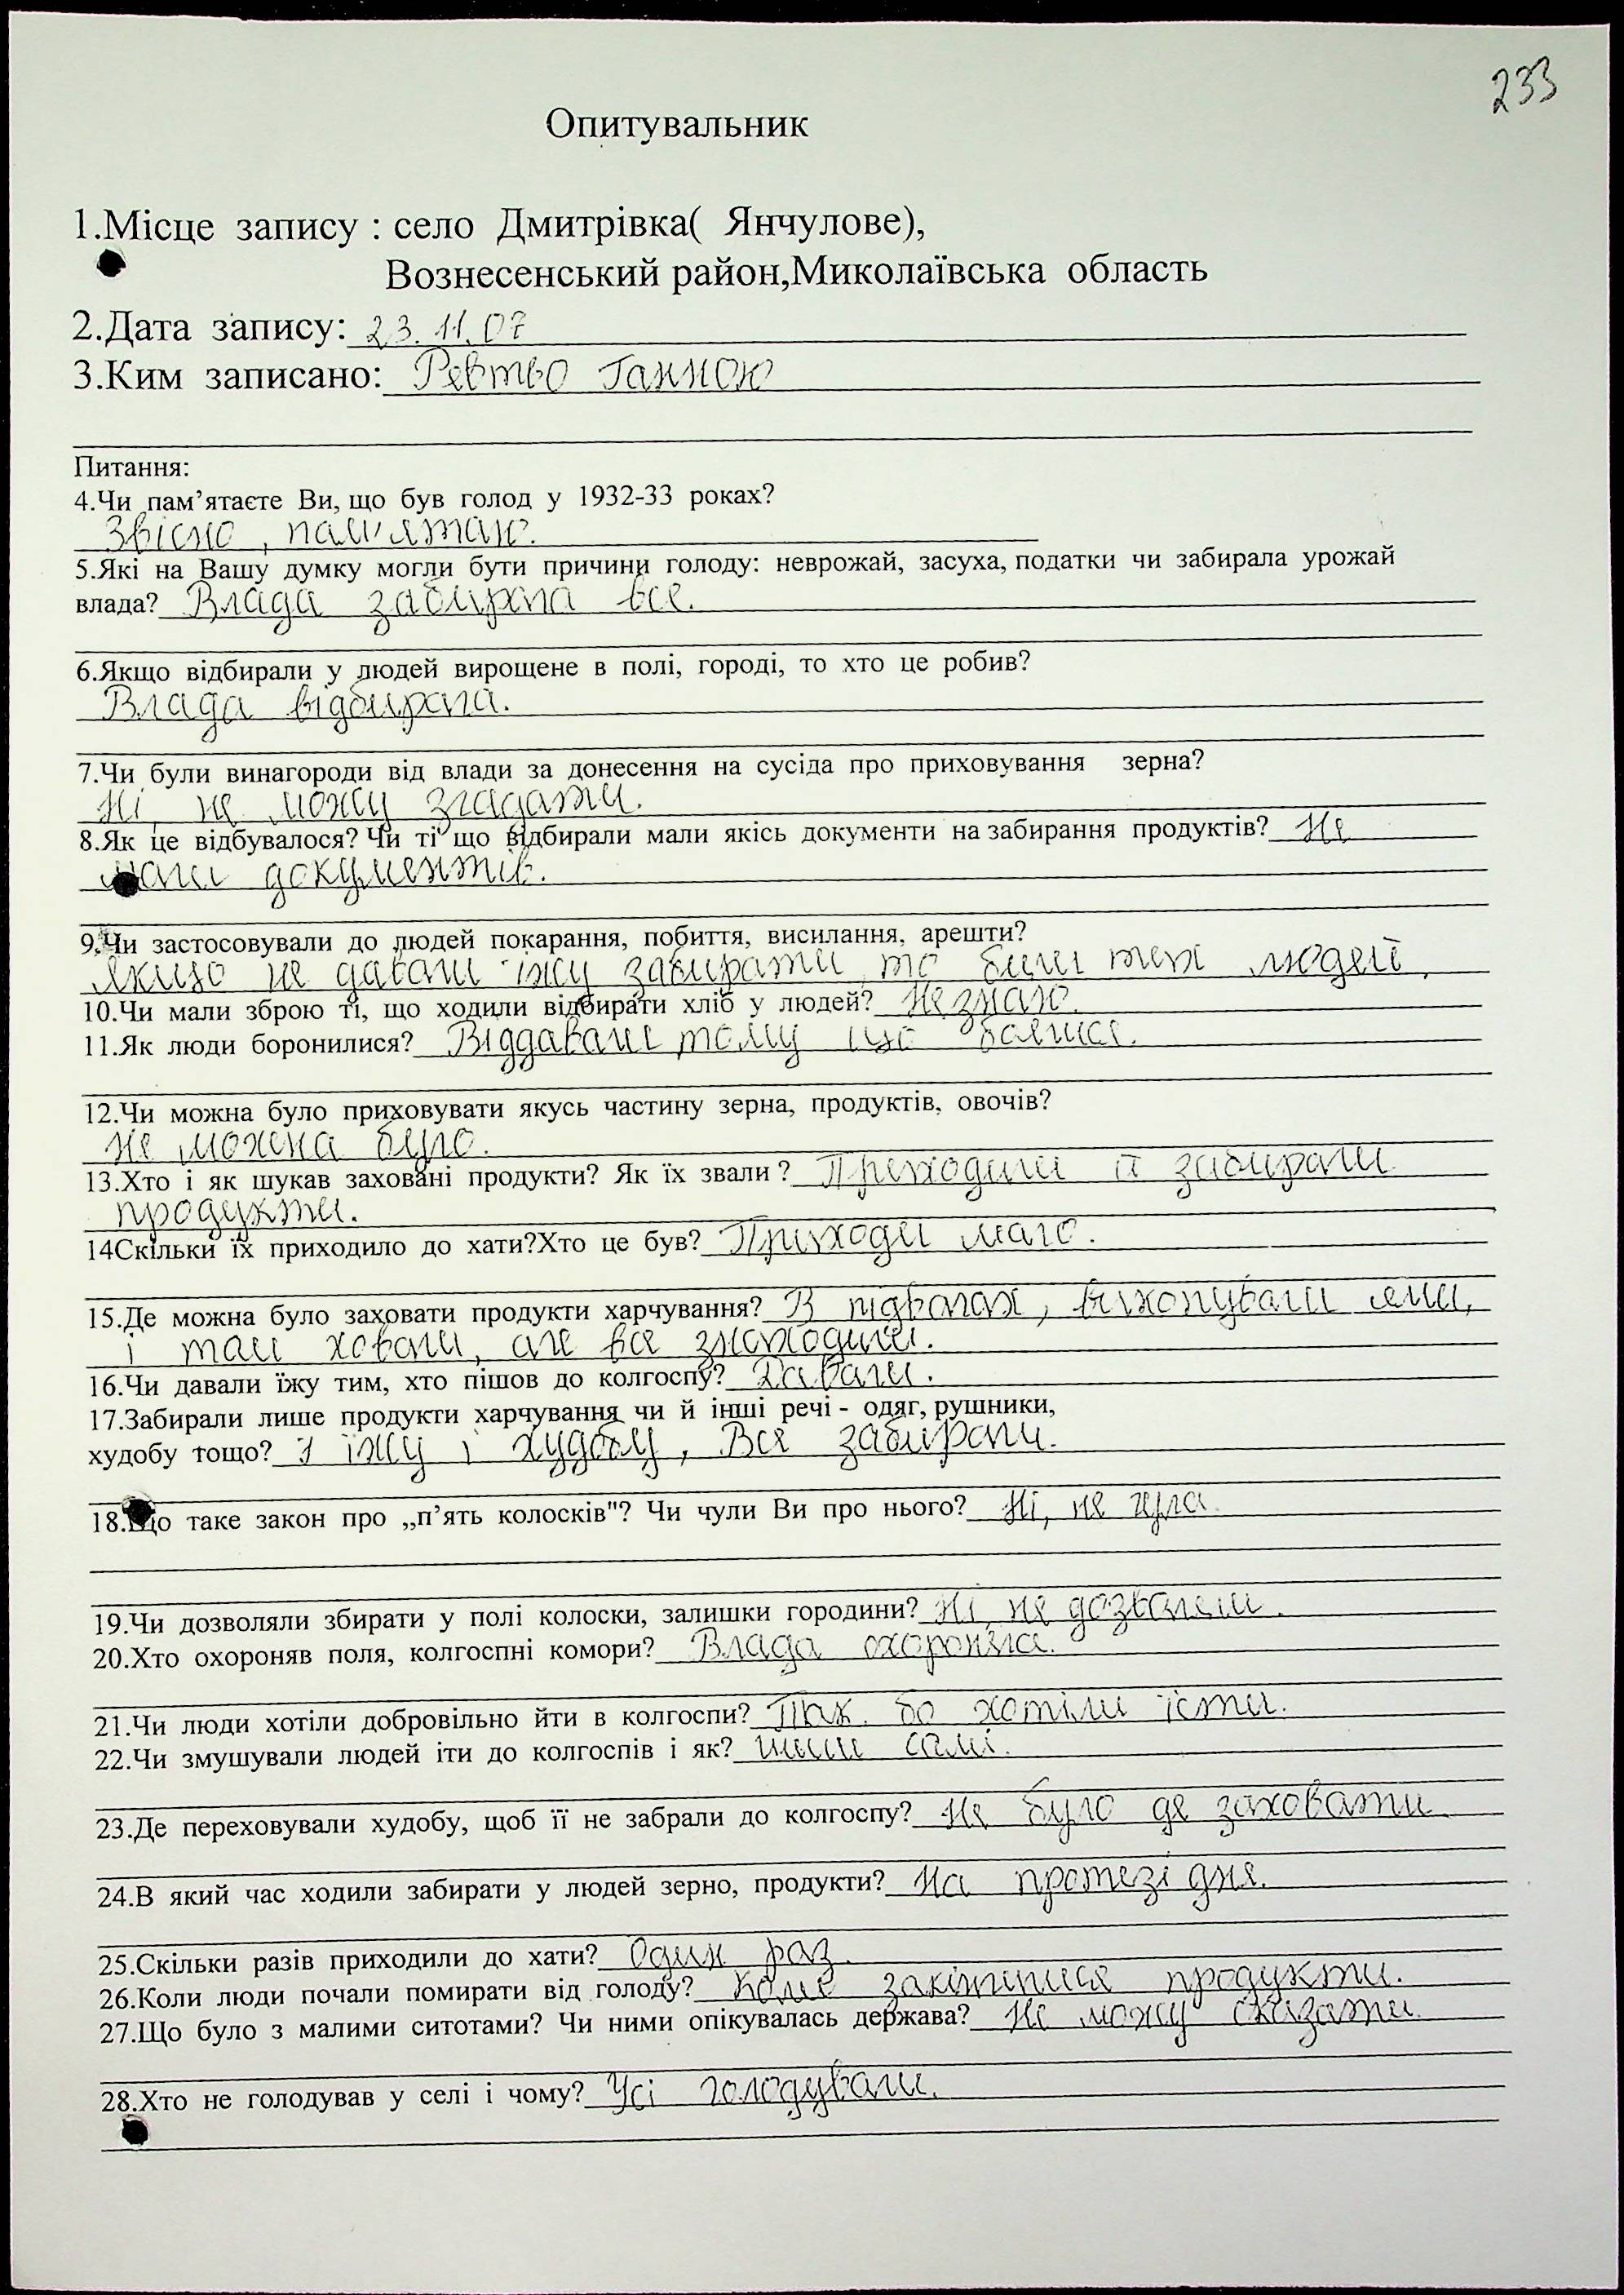 233
Опитувальник
1.Місце запису : село Дмитрівка( Янчулове),
Вознесенський район,Миколаївська область
2.Дата запису: 23.11.07
3.Ким записано: Ганною
Питання:
4.Чи пам’ятаєте Ви, що був голод у 1932-33 роках?
Звісно, пам'ятаю.
5.Які на Вашу думку могли бути причини голоду: неврожай, засуха, податки чи забирала урожай
влада? Влада забирала все.
6.Якщо відбирали у людей вирощене в полі, городі, то хто це робив?
Влада відбирала.
7.Чи були винагороди від влади за донесення на сусіда про приховування зерна?
Ні, не можу згадати.
8.Як це відбувалося? Чи ті що відбирали мали якісь документи на забирання продуктів? Не
мали документів.
9.Чи застосовували до людей покарання, побиття, висилання, арешти?
Якщо не давали їжу забирати, то били тех людей.
10.Чи мали зброю ті, що ходили відбирати хліб у людей? Не знаю.
11.Як люди боронилися? Віддавали тому що боялися.
12.Чи можна було приховувати якусь частину зерна, продуктів, овочів?
Не можна було.
13.Хто і як шукав заховані продукти? Як їх звали ? Приходили й забирали
продукти.
14Скільки їх приходило до хати?Хто це був? Приходи мало.
15.Де можна було заховати продукти харчування? В підвалах, викопували ями,
і там ховали, але все знаходили.
16.Чи давали їжу тим, хто пішов до колгоспу? Давали.
17.Забирали лише продукти харчування чи й інші речі - одяг, рушники,
худобу тощо? І їжу і худобу, Все забирали.
18.Що таке закон про „п’ять колосків"? Чи чули Ви про нього? Ні, не чула.
19.Чи дозволяли збирати у полі колоски, залишки городини? Ні, не дозваляли.
20.Хто охороняв поля, колгоспні комори? Влада охороняла.
21.Чи люди хотіли добровільно йти в колгоспи? Так. бо хотіли їсти.
22.Чи змушували людей іти до колгоспів і як? шши самі.
23.Де переховували худобу, щоб її не забрали до колгоспу? Не було де заховати.
24.В який час ходили забирати у людей зерно, продукти? На протезі дня.
25.Скільки разів приходили до хати? Один раз.
26.Коли люди почали помирати від голоду? Коли закінчилися продукти.
27.Що було з малими ситотами? Чи ними опікувалась держава? Не можу сказати.
28.Хто не голодував у селі і чому? Усі голодували.